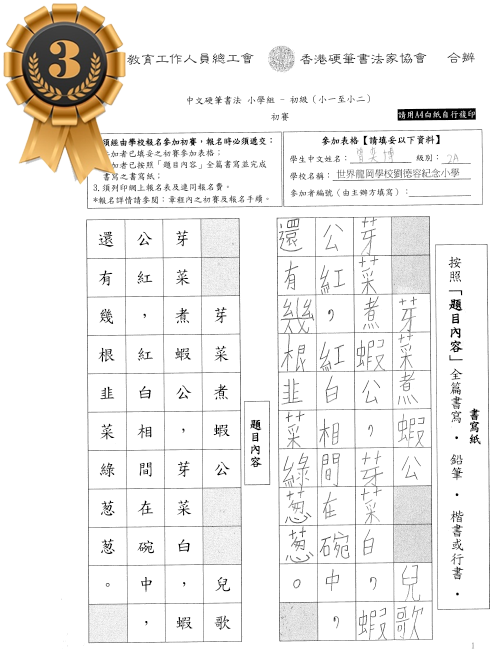 3
教育工作人員總工會 香港硬筆書法家協會 合辦
中文硬筆書法 小學組 - 初級（小一至小二）
初賽
請用A4白紙自行複印
須經由學校報名參加初賽，報名時必須遞交：
加者已填妥之初賽參加表格；
加者已按照「題目內容」全篇書寫並完成
書寫之書寫紙；
3. 須列印網上報名表及連同報名費。
*報名詳情請參閱：章程內之初賽及報名手續。
參加表格【請填妥以下資料】
學生中文姓名： 級別：2A
學校名稱：世界龍岡學校劉德容紀念小學
參加者編號（由主辦方填寫）：
按照「題目內容」全篇書寫 · 鉛筆 · 楷書或行書 ·
書寫紙
芽菜煮蝦公 兒歌
芽菜煮蝦公，芽菜白，蝦
公紅，紅白相間在碗中，
還有幾根韭菜綠葱葱。
題目內容
芽菜煮蝦公 兒歌
芽菜煮蝦公，芽菜白，蝦
公紅，紅白相間在碗中，
還有幾根韭菜綠葱葱。
1